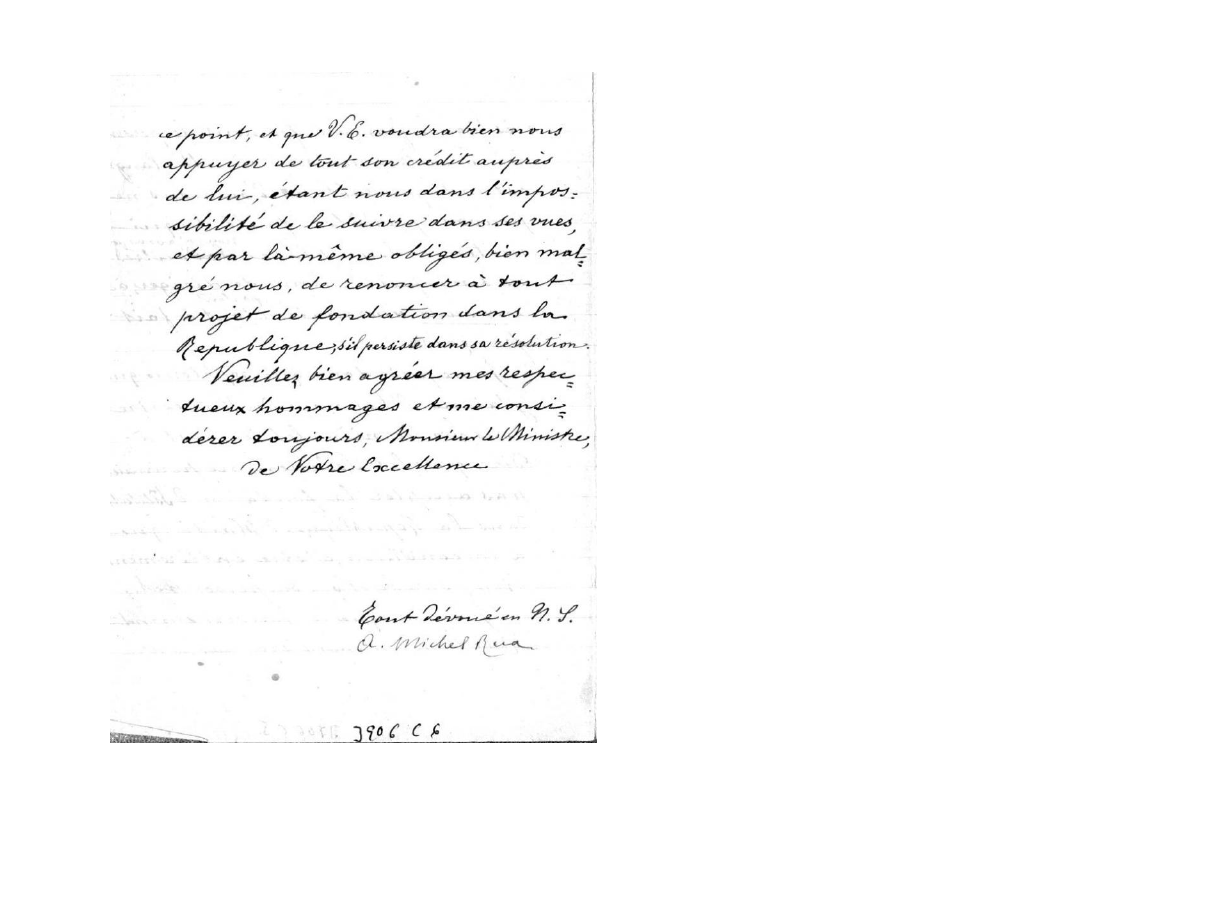 ce point, et que V. E. voudra bien nous
appuyer de tout son crédit auprès
de lui, étant nous dans l'impos=
sibilité de le suivre dans ses vues,
et par là-même obligés, bien mal=
gré nous, de renoncer à tout
projet de fondation dans la
Republique, s'il persiste dans sa résolution.
Veuillez bien agréer mes respec=
tueux hommages et me consi=
dérer toujours, Monsieur le Ministre,
De Votre Excellence
Tout dévoué en N. S.
Michel Rua
3906 C 6